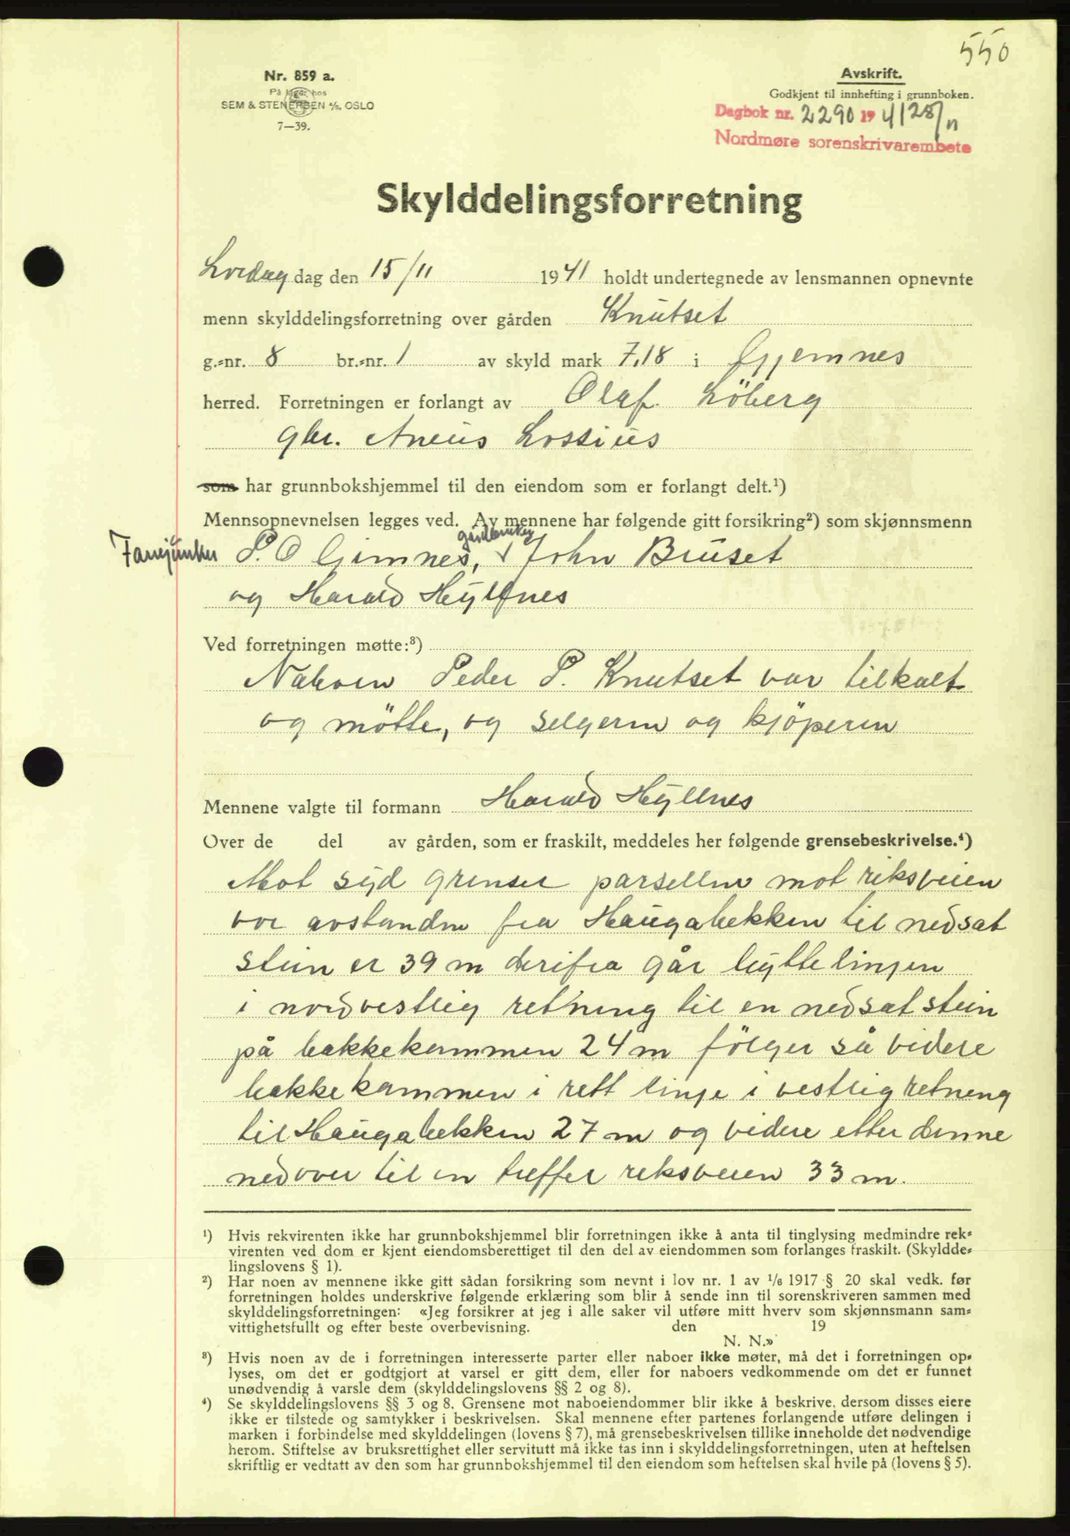 550
Nr. 859 a.
På lager hos
SEM & STENERSEN A/S, OSLO
7—39.
Avskrift.
Godkjent til innhefting i grunnboken.
Dagbok nr. 2290 1941 28/11
Nordmøre sorenskrivarembete
Skylddelingsforretning
Lördag dag den 15/11 1941 holdt undertegnede av lensmannen opnevnte
menn skylddelingsforretning over gården Knutset
g.-nr. 8 br.-nr. 1 av skyld mark 7,18 i Gjemnes
herred. Forretningen er forlangt av Olaf Löberg
gbr. Aneus Lossius
som har grunnbokshjemmel til den eiendom som er forlangt delt.¹)
Mennsopnevnelsen legges ved. Av mennene har følgende gitt forsikring²) som skjønnsmenn
Fanejunker P. O Gimnes, gårdbruker John Bruset
og Harald Hyllnes
Ved forretningen møtte:³)
Naboen Peder P. Knutset var tilkalt
og mötte, og selgeren og kjöperen
Mennene valgte til formann Harald Hyllnes
Over de del av gården, som er fraskilt, meddeles her følgende grensebeskrivelse.⁴)
Mot syd grenser parsellen mot riksveien
vor avstanden fra Haugabekken til nedsat
stein er 39 m derifra går byttelinjen
i nordvestlig retning til en nedsat stein
på bakkekammen 24 m følger så videre
bakkekammen i rett linje i vestlig retning
til Haugabekken 27 m og videre etter denne
nedover til en treffer riksveien 33 m.
¹) Hvis rekvirenten ikke har grunnbokshjemmel blir forretningen ikke å anta til tinglysing medmindre rek-
virenten ved dom er kjent eiendomsberettiget til den del av eiendommen som forlanges fraskilt. (Skyldde-
lingslovens § 1).
²) Har noen av mennene ikke gitt sådan forsikring som nevnt i lov nr. 1 av 1/6 1917 § 20 skal vedk. før
forretningen holdes underskrive følgende erklæring som blir å sende inn til sorenskriveren sammen med
skylddelingsforretningen: «Jeg forsikrer at jeg i alle saker vil utføre mitt hverv som skjønnsmann sam-
vittighetsfullt og efter beste overbevisning. den 19
N. N.»
³) Hvis noen av de i forretningen interesserte parter eller naboer ikke møter, må det i forretningen op-
lyses, om det er godtgjort at varsel er gitt dem, eller for naboers vedkommende om det er funnet
unødvendig å varsle dem (skylddelingslovens §§ 2 og 8).
⁴) Se skylddelingslovens §§ 3 og 8. Grensene mot naboeiendommer blir ikke å beskrive, dersom disses eiere
ikke er tilstede og samtykker i beskrivelsen. Skal mennene efter partenes forlangende utføre delingen i
marken i forbindelse med skylddelingen (lovens § 7), må grensebeskrivelsen tillike inneholde det nødvendige
herom. Stiftelse av bruksrettighet eller servitutt må ikke tas inn i skylddelingsforretningen, uten at heftelsen
skriftlig er vedtatt av den som har grunnbokshjemmel til den eiendom som heftelsen skal hvile på (lovens § 5).